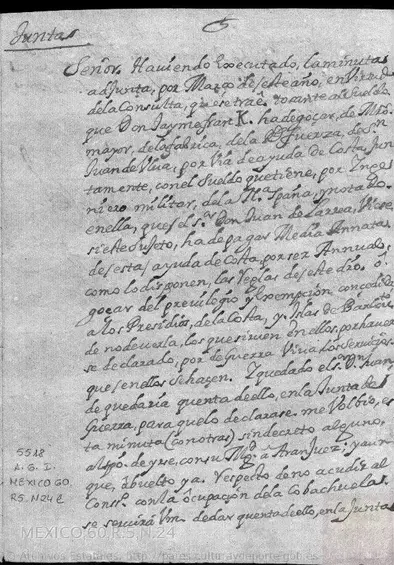 Juntas
Señor. Haviendo Executado, la minuta
adjunta, por Março de este año, en virtud
de la Consulta, que se trae, tocante al sueldo
que Don Jayme Fran K. ha de goçar, de Mro.
mayor, de la fabrica, de la fuerza, de Sn
Juan de Ulua, por via de ayuda de Costa, Jun
tamente, con el Sueldo que tiene, por Inge
niero militar, de la Na. España, y nota do
en ella, que el sr. Don Juan de Larrea, Vie se
si este Sujeto, ha de pagar Media Annata,
de esta ayuda de Costa, por ser Annudo,
como lo disponen, las Reglas de este dro. ô.
goçar del previlegio y Exempción concedida
a los Presidios, de la Costa, y Islas de Barlovto
de no deverla, los que sirven en ellos, por haver
se declarado, por de guerra Viva los Servicios
que en ellos se haçen. I quedado el sr. Dn Juan
de que daria quenta de ello, en la Junta de
Guerra, para que lo declarase. me Volbio, es
ta minuta (con otras) sin decreto alguno,
al tpo. de yrse, con su Mgd. a Aranjuez: y aun
que, à buelto ya. respecto de no acudir al
Consº. con la ôcupaçion de la Cobachuelas.
se servirá Vm. de dar quenta de ello, en la Junta
5518
A. G. I.
MEXICO 60.
R5. N24
MEXICO,60,R.5,N.24